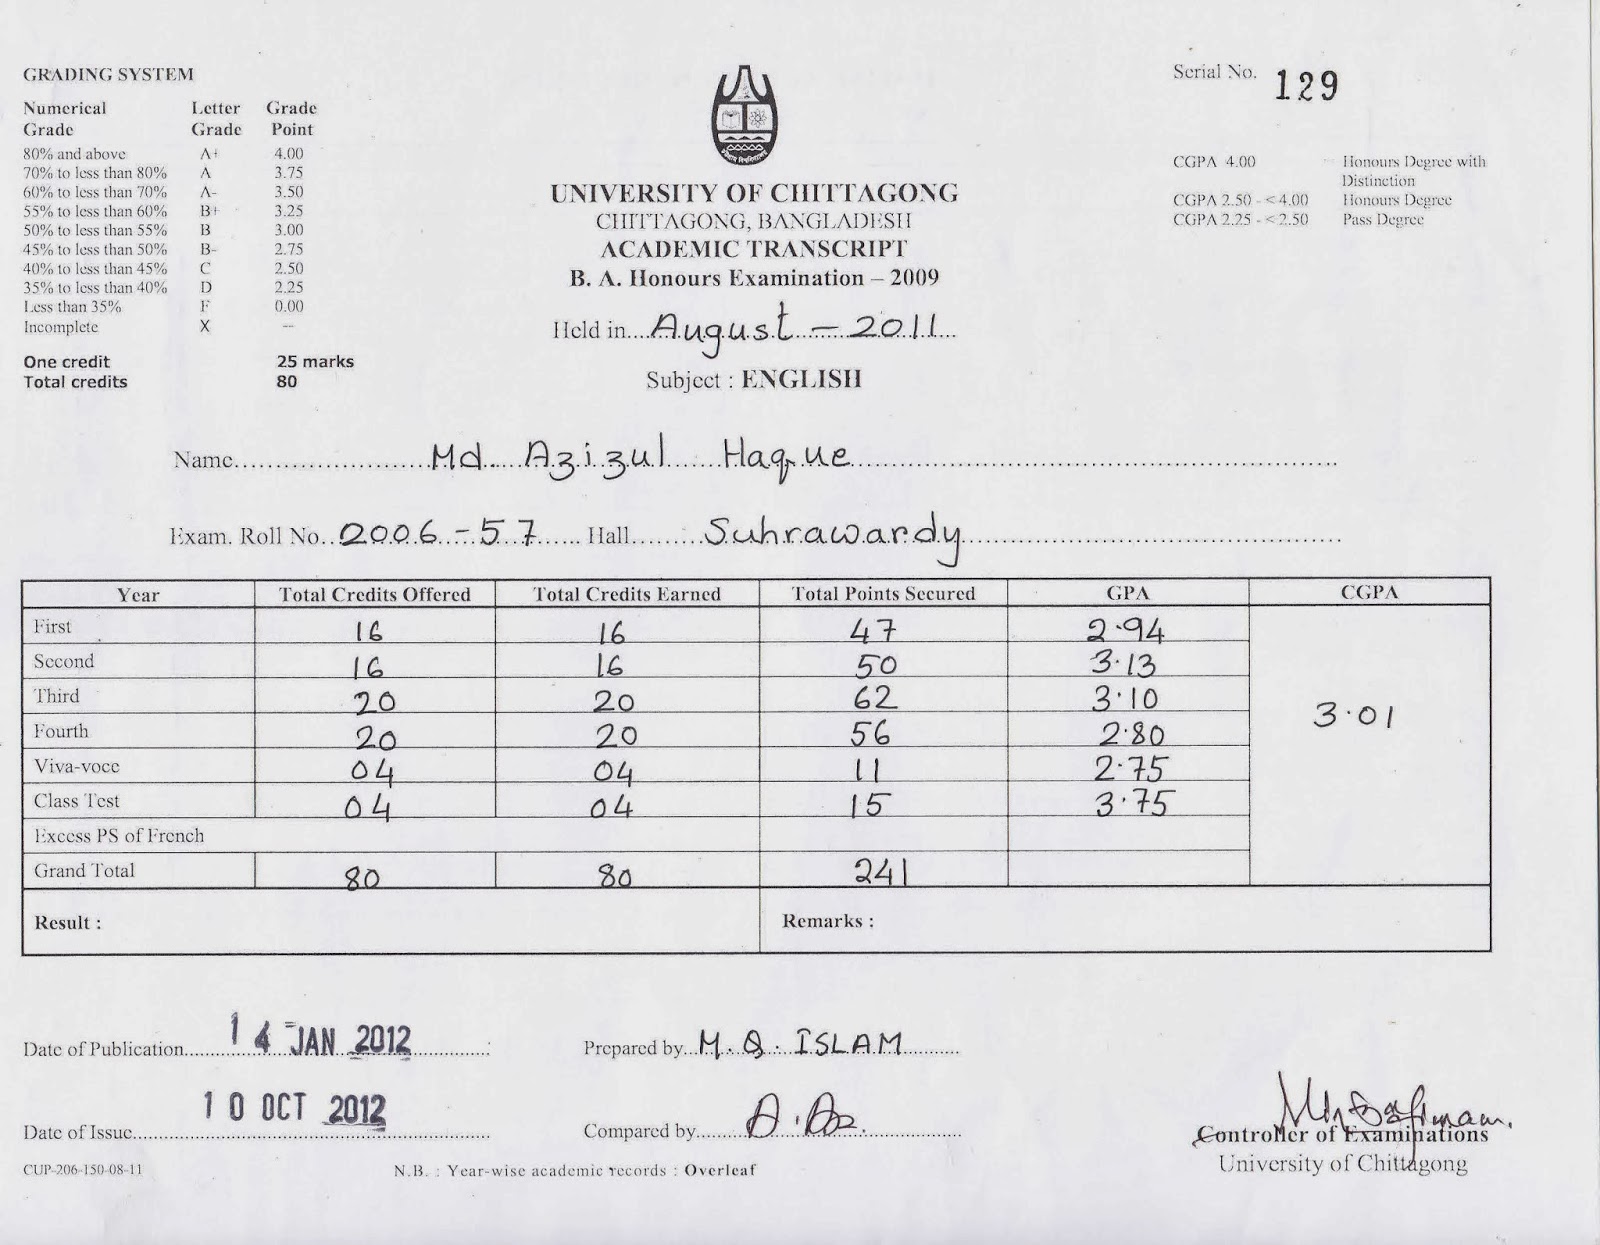 GRADING SYSTEM
Numerical Grade Letter Grade Grade Point
80% and above A+ 4.00
70% to less than 80% A 3.75
60% to less than 70% A- 3.50
55% to less than 60% B+ 3.25
50% to less than 55% B 3.00
45% to less than 50% B- 2.75
40% to less than 45% C 2.50
35% to less than 40% D 2.25
Less than 35% F 0.00
Incomplete X --
One credit 25 marks
Total credits 80
UNIVERSITY OF CHITTAGONG
CHITTAGONG, BANGLADESH
ACADEMIC TRANSCRIPT
B. A. Honours Examination – 2009
Held in....August – 2011...
Subject : ENGLISH
Serial No. 129
CGPA 4.00 - Honours Degree with
Distinction
CGPA 2.50 - <4.00 Honours Degree
CGPA 2.25 - <2.50 Pass Degree
Name......Md. Azizul Haque......
Exam. Roll No...2006 - 57...... Hall.........Suhrawardy......
Year Total Credits Offered Total Credits Earned Total Points Secured GPA CGPA
First 16 16 47 2.94
Second 16 16 50 3.13
Third 20 20 62 3.10 3.01
Fourth 20 20 56 2.80
Viva-voce 04 04 11 2.75
Class Test 04 04 15 3.75
Excess PS of French
Grand Total 80 80 241
Result : Remarks :
Date of Publication......14 JAN 2012......
Prepared by...M. Q. ISLAM......
Date of Issue......10 OCT 2012......
Compared by......
Controller of Examinations
University of Chittagong
CUP-206-150-08-11 N.B. : Year-wise academic records : Overleaf